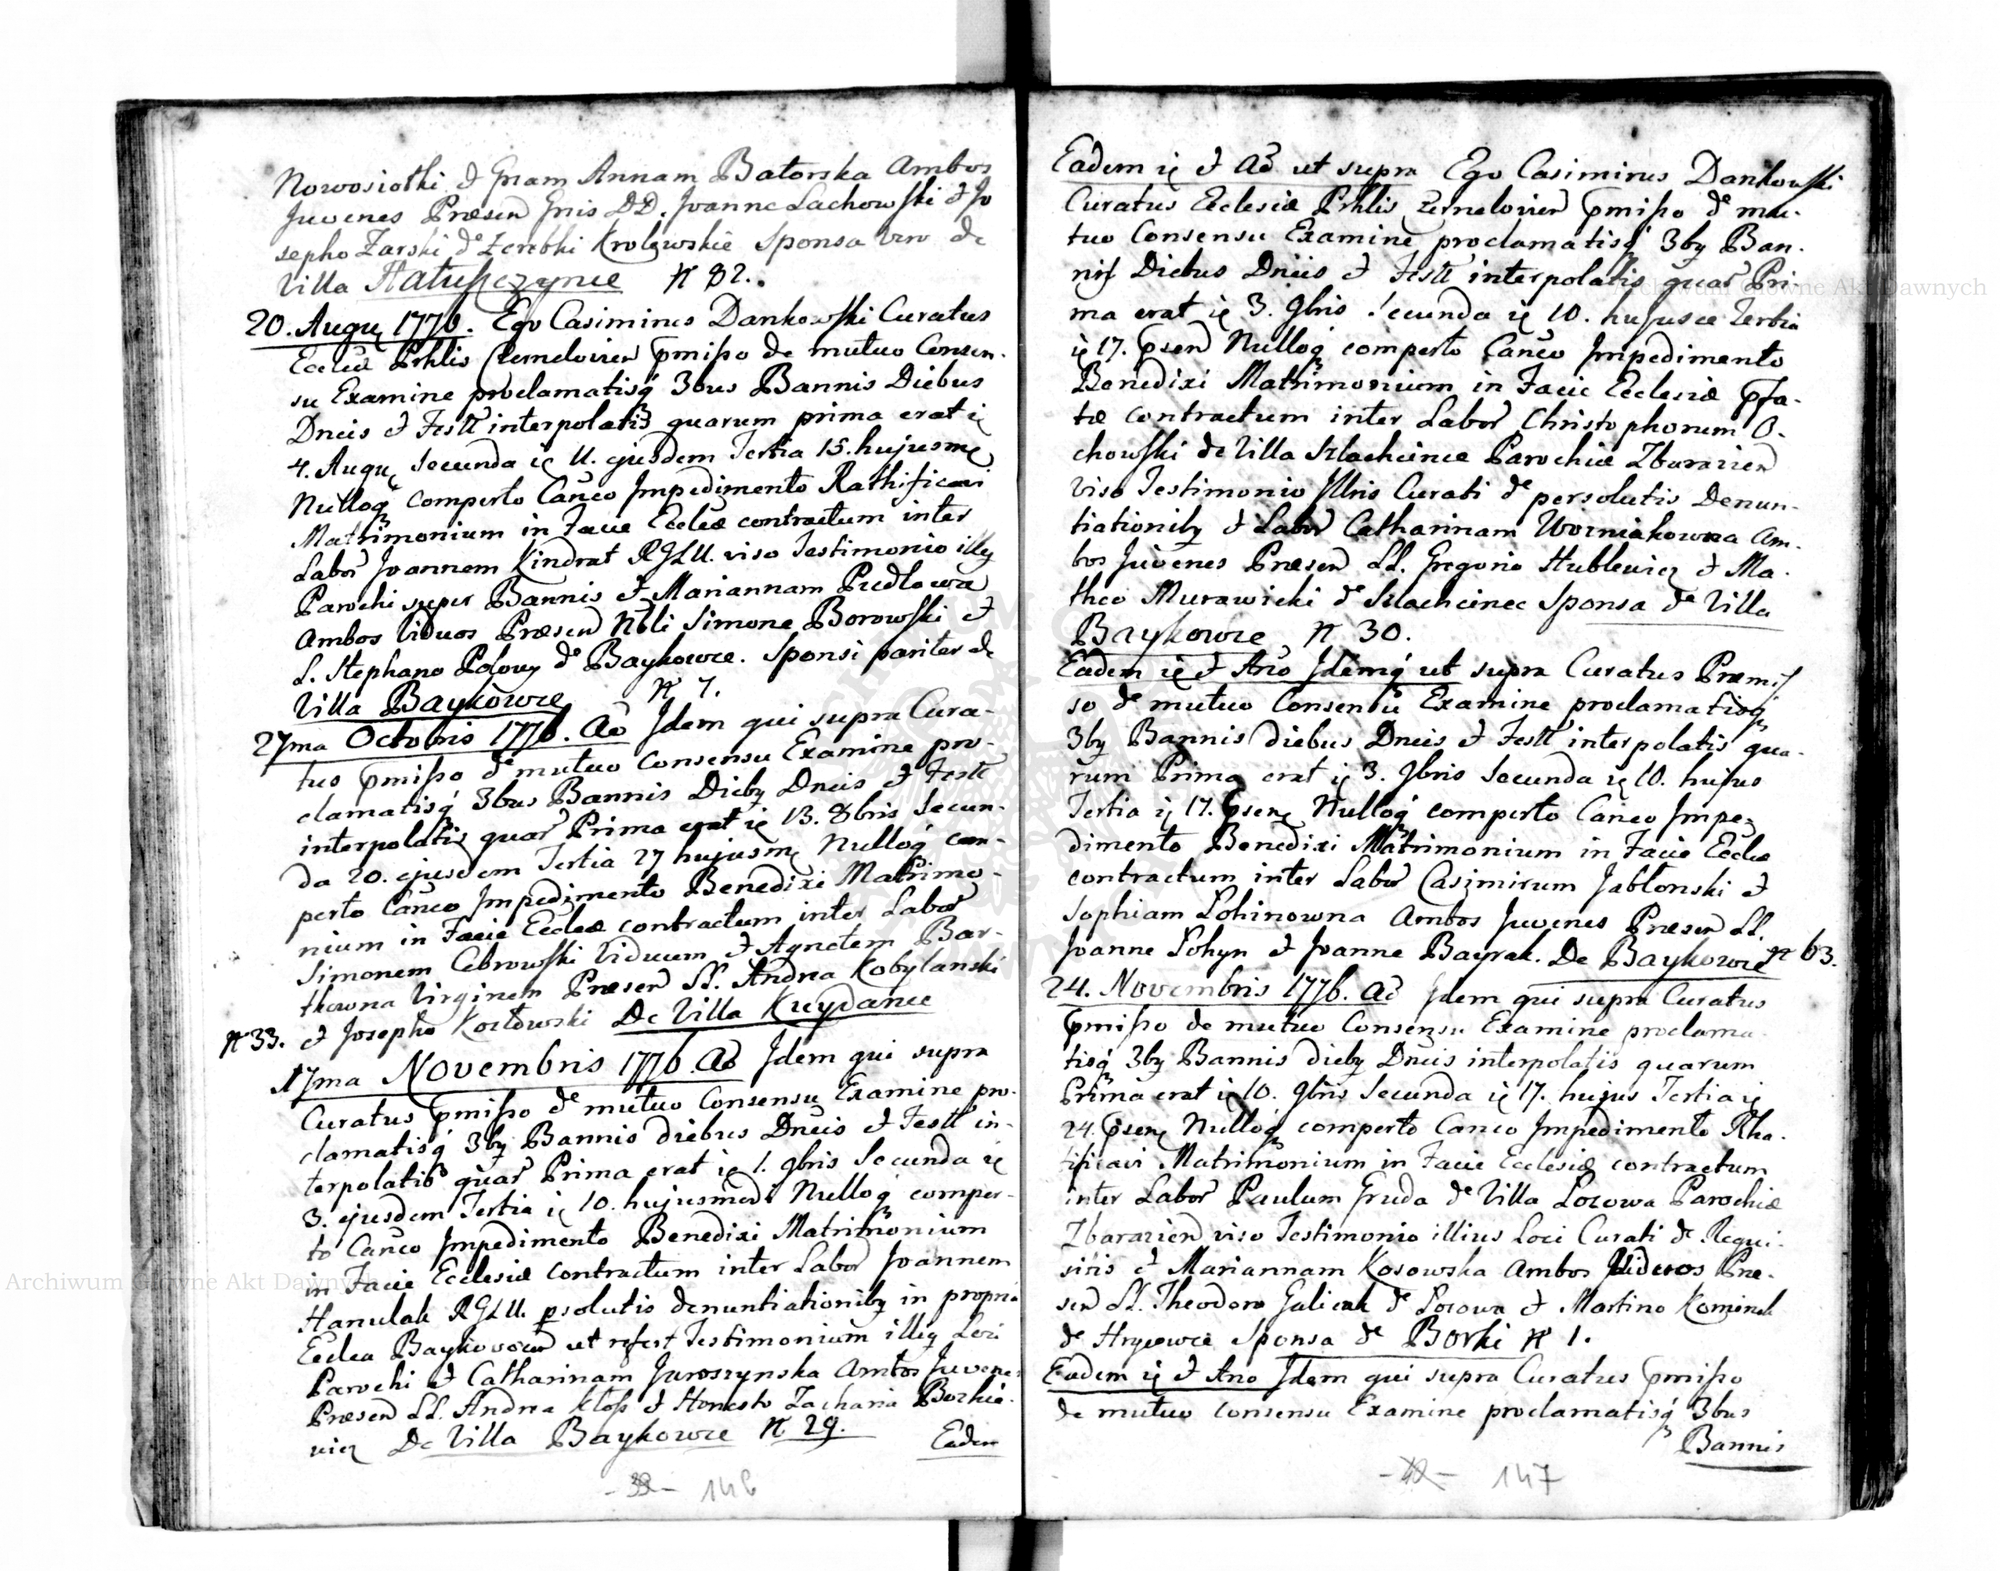 Nowosiołki & Gnam Annam Batorska Ambos
Juvenes Præsen Gnis DD. Joanne Lachowski & Jo
sepho Zarski de Zerebki Krolewskie Sponsa vero de
Villa Hałuszczynce N 82.
20. Augu 1776. Ego Casimirus Dankowski Curatus
Eccliæ Prhlis Czernelovien pmisso de mutuo Consen-
su Examine proclamatisq 3bus Bannis Diebus
Dnicis & Festi interpolatis quarum prima erat ie
4. Augu secunda ie 11. ejusdem Tertia 15. hujusme
Nulloq comperto Canco Impedimento Rathificavi
Matrimonium in Facie Eccliæ contractum inter
Labor Joannem Kindrat RGLU. viso Testimonio illig
Parochi super Bannis & Mariannam Pudłowa
Ambos Viduos Præsen Nbli Simone Borowski &
L. Stephano Polowy de Baykowce. Sponsi pariter de
Villa Baykowce N 7.
27ma Octobris 1776. Ao Idem qui supra Cura-
tus pmisso de mutuo Consensu Examine pro-
clamatisq 3bus Bannis Dieby Dnicis & Festi
interpolatis quar Prima erat ie 13. 8bris Secun-
da 20. ejusdem Tertia 27 hujusme Nulloq com-
perto Canco Impedimento Benedixi Matrimo-
nium in Facie Eccleæ contractum inter Labor
Simonem Cebrowski Viduum & Agnetem Bar-
tkowna Virginem Præsen LL. Andrea Kobylanski
N 33. & Josepho Kozłowski De Villa Kuydance
17ma Novembris 1776 Ao Idem qui supra
Curatus pmisso de mutuo Consensu Examine pro-
clamatisq 3by Bannis diebus Dnicis & Festi in-
terpolatis quar Prima erat ie 1. 9bris Secunda ie
3. ejusdem Tertia ie 10. hujusmodi Nulloq comper-
to Canco Impedimento Benedixi Matrimonium
in Facie Ecclesiæ contractum inter Labor Joannem
Hanulak RGLU. persolutis denuntiationiby in propria
Ecclea Baykovocen ut refert Testimonium illig Loci
Parochi & Catharinam Juroszynska Ambos Juvene
Præsen LL. Andrea Kloss & Honesto Zacharia Borkie-
wicz De Villa Baykowce N 29.
Eadem
146
Eadem ie & Ao ut supra Ego Casimirus Dankowski
Curatus Ecclesiæ Prhlis Czernelovien pmisso de mu-
tuo Consensu Examine proclamatisq 3by Ban-
nis Diebus Dnicis & Festi interpolatis quar Pri-
ma erat ie 3. 9bris Secunda ie 10. hujusce Tertia
ie 17. psen Nulloq comperto Canco Impedimento
Benedixi Matrimonium in Facie Ecclesiæ pfa-
tæ contractum inter Labor Christophorum O-
chowski de Villa Szlachcince Parochiæ Zbarazien
viso Testimonio Illris Curati de persolutis Denun-
tiationiby & Labor Catharinam Worniakowna Am-
bos Juvenes Præsen LL. Gregorio Hublewicz & Ma-
theo Murawicki de Szlachcinec Sponsa de Villa
Baykowce N 30.
Eadem ie & Ano Idemq ut supra Curatus Præmis
so de mutuo Consensu Examine proclamatisq
3by Bannis diebus Dnicis & Festi interpolatis qua-
rum Prima erat ie 3. 9bris Secunda ie 10. hujus
Tertia ie 17. psen Nulloq comperto Canco Impe-
dimento Benedixi Matrimonium in Facie Eccleæ
contractum inter Labor Casimirum Jabłonski &
Sophiam Łohinowna Ambos Juvenes Præsen LL.
Joanne Łohyn & Joanne Bayrak. De Baykowce N 63.
24. Novembris 1776. Ao Idem qui supra Curatus
pmisso de mutuo Consensu Examine proclama
tisq 3by Bannis dieby Dnicis interpolatis quarum
Prima erat ie 10. 9bris Secunda ie 17. hujus Tertia ie
24. psen Nulloq comperto Canco Impedimento Rha-
tificavi Matrimonium in Facie Ecclesiæ contractum
inter Labor Paulum Gruda de Villa Łozowa Parochiæ
Zbarazien viso Testimonio illius Loci Curati de Requi-
sitis & Mariannam Kosowska Ambos Viduos Præ-
sen LL. Theodoro Galicak de Łozowa & Martino Kominek
de Hrycowce Sponsa de Borki N 1.
Eadem ie & Ano Idem qui supra Curatus pmisso
de mutuo consensu Examine proclamatisq 3bus
Bannis
147
Archiwum Główne Akt Dawnych
Archiwum Główne Akt Dawnych